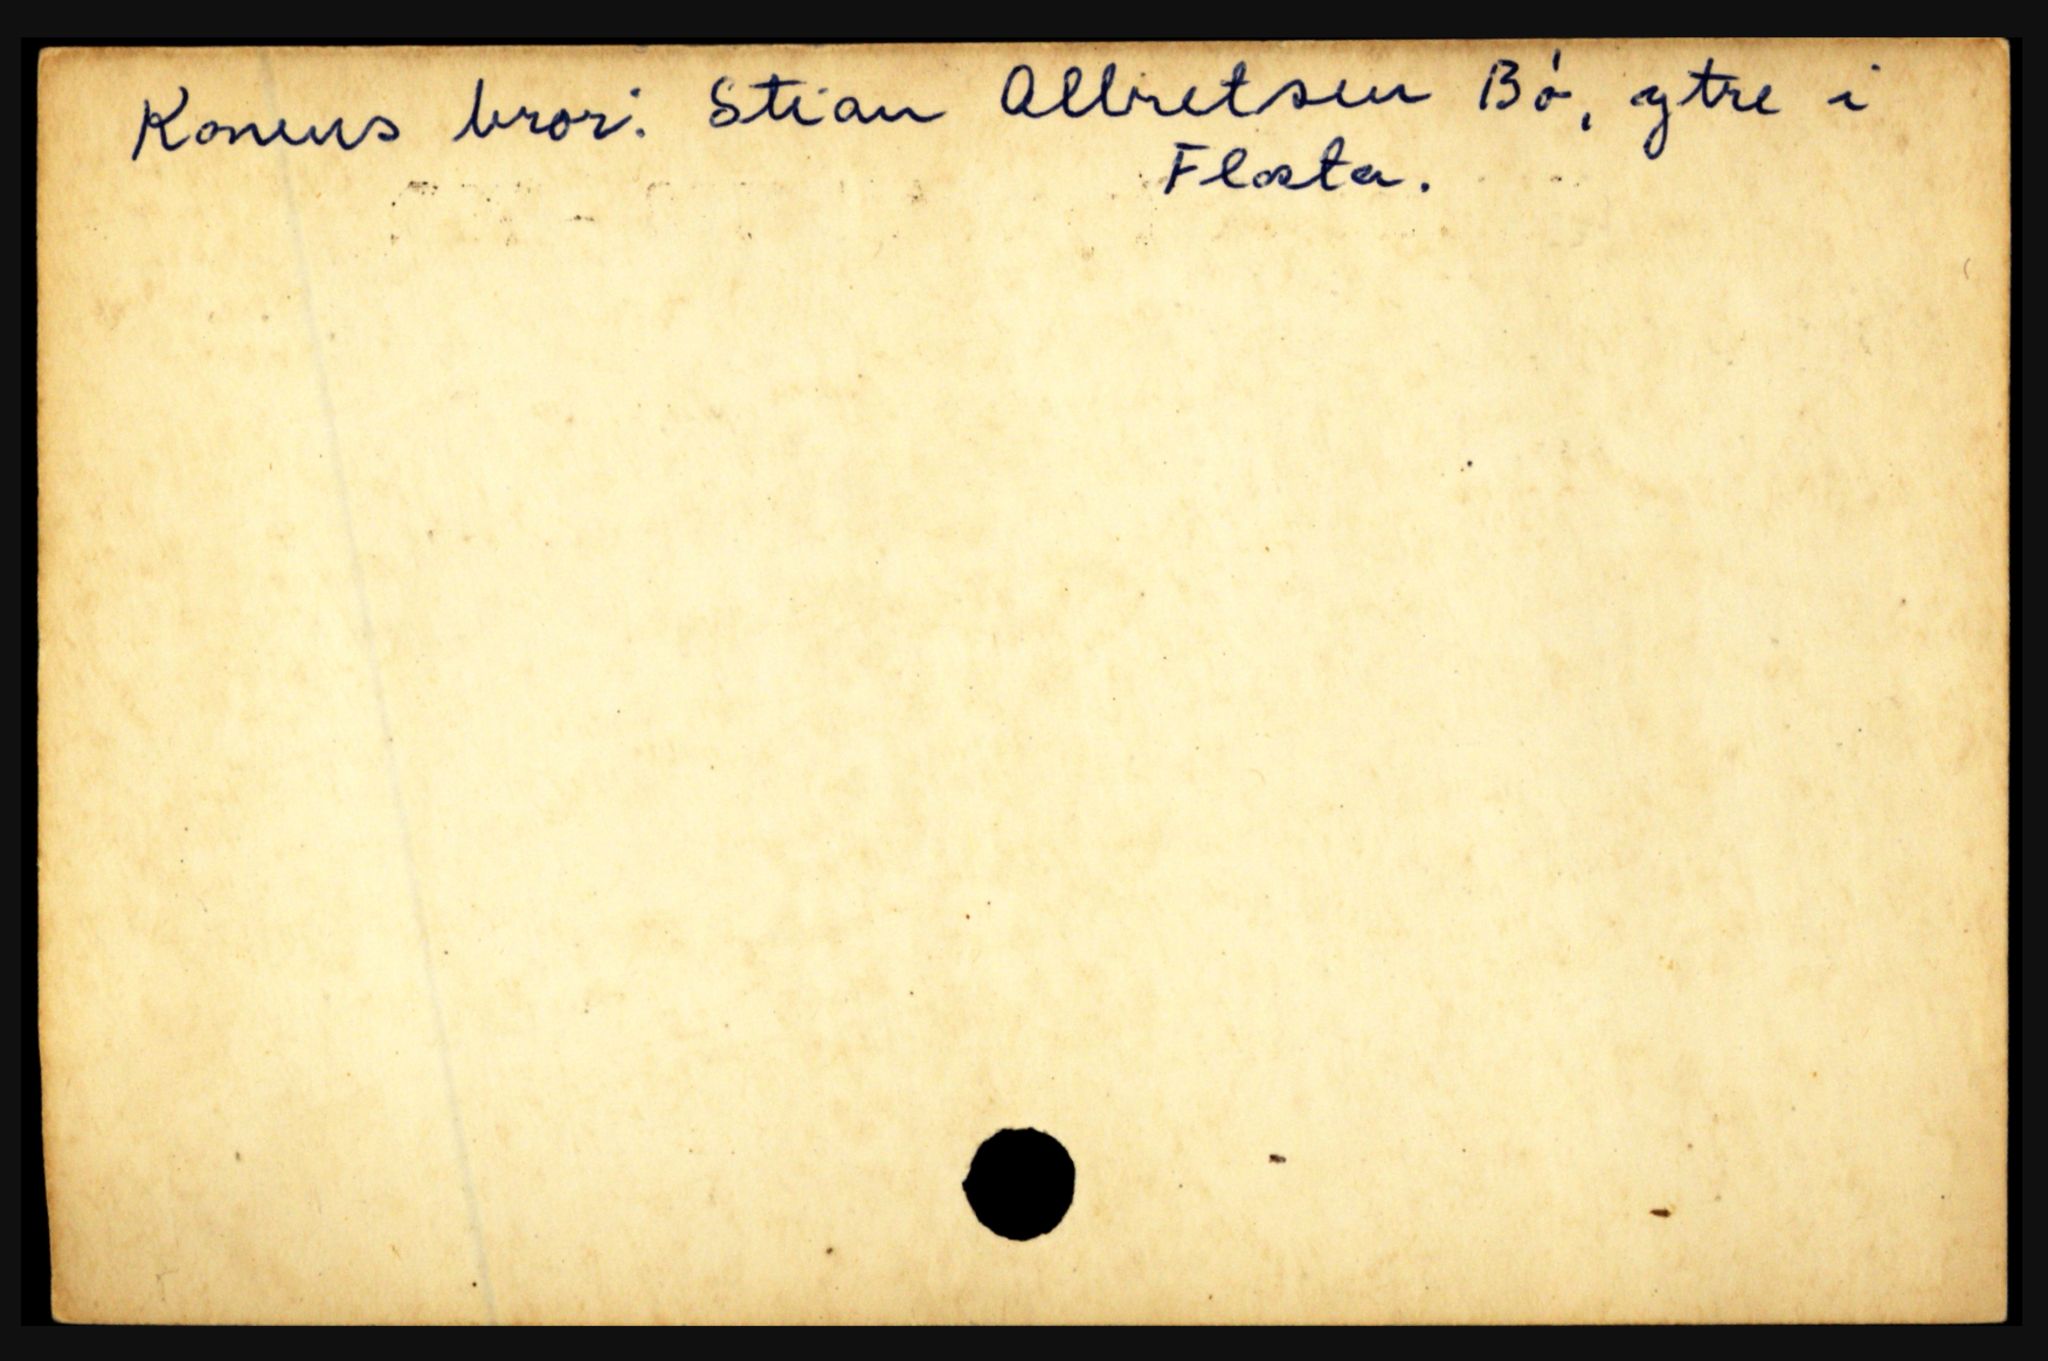 Konens bror: Stian Albretsen Bö, ytre i
Flosta.